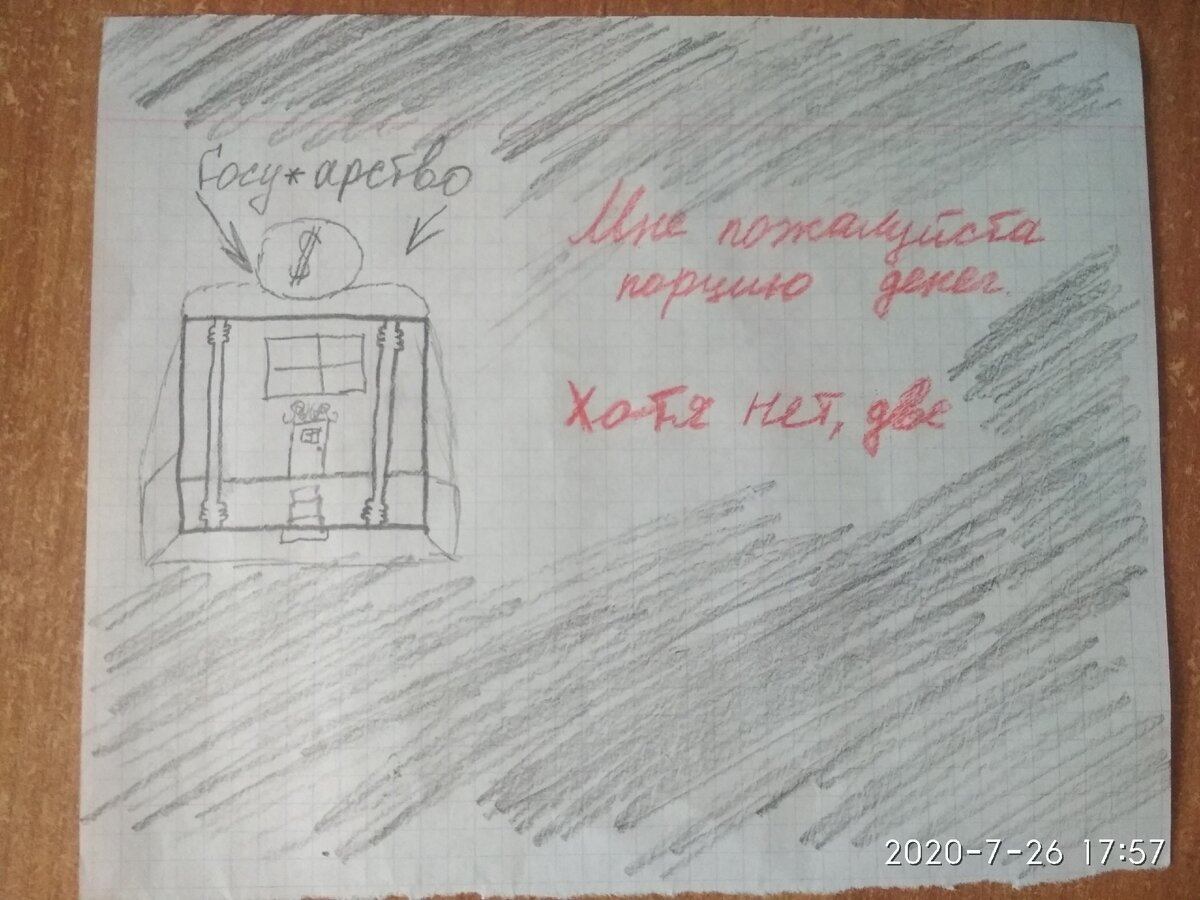 Госу*арство
$
Мне пожалуйста
порцию денег.
Хотя нет, две
2020-7-26 17:57